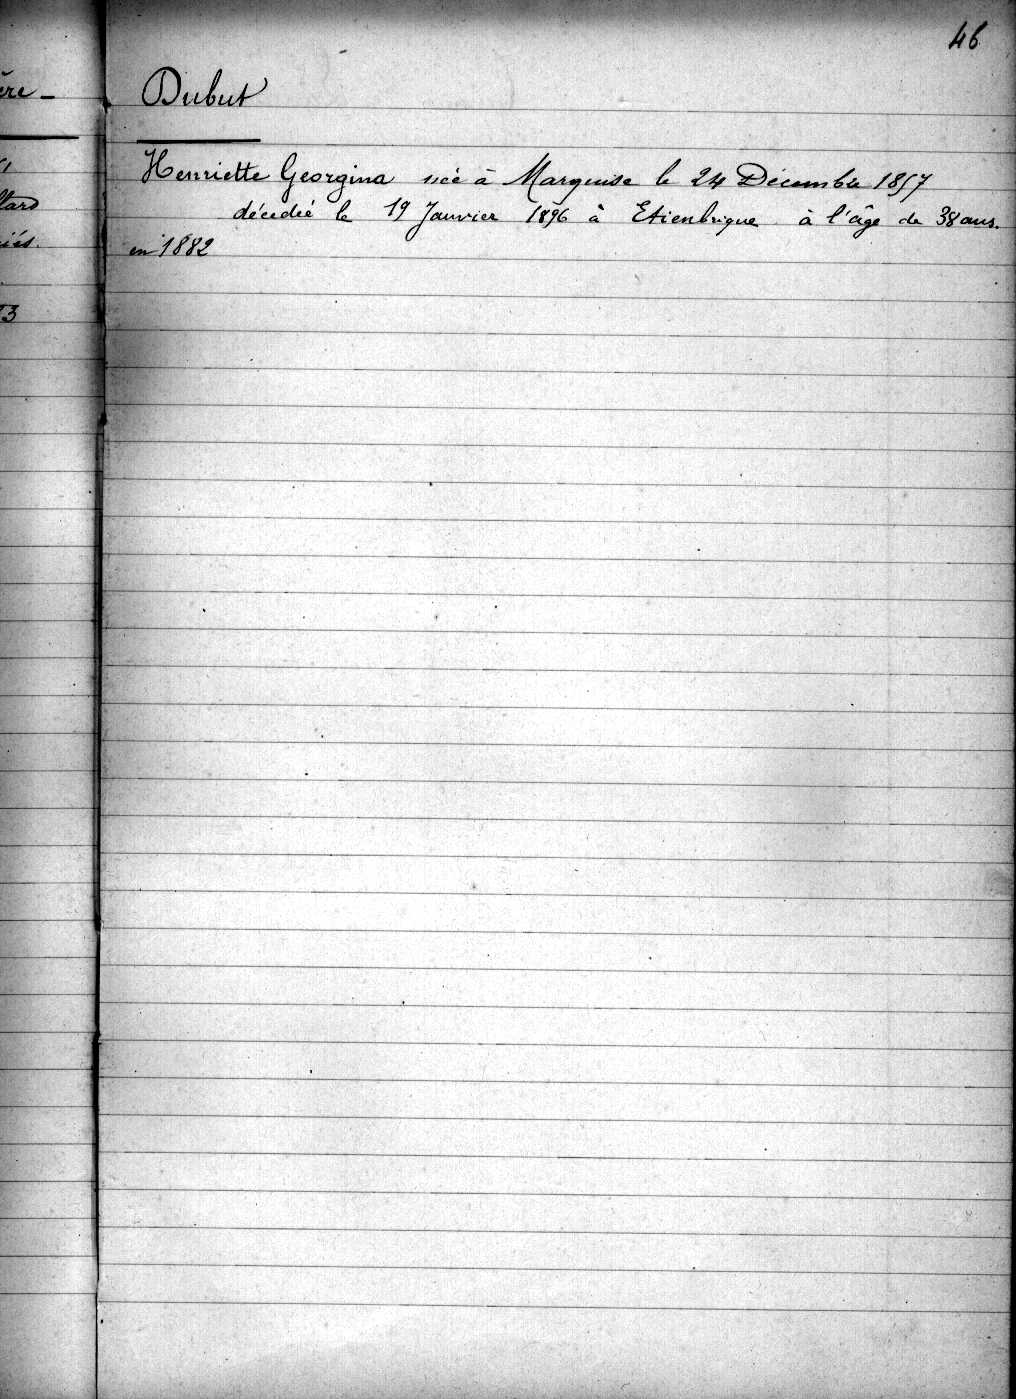 46
Dubut
Henriette Georgina née à Marquise le 24 Décembre 1857
décedée le 19 Janvier 1896 à Etienbrique à l'âge de 38 ans.
en 1882